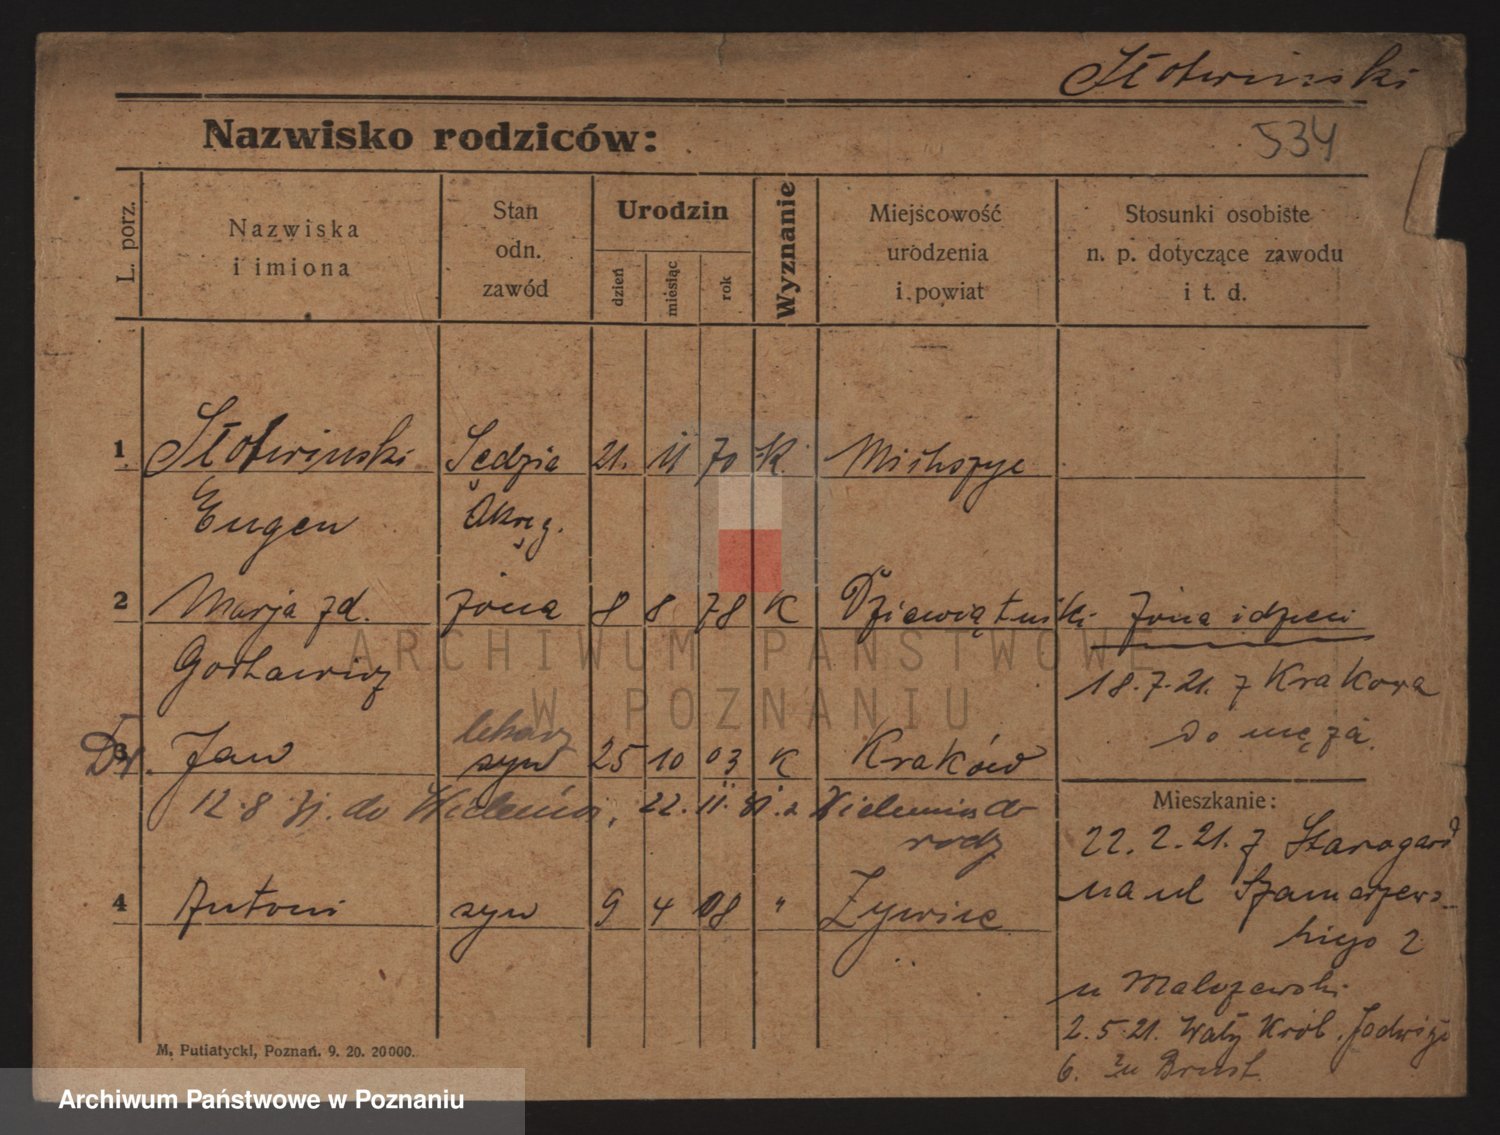 Słotwinski
Nazwisko rodziców:
534
L. porz.
Nazwiska
i imiona
Stan
odn.
zawód
Urodzin
dzień
miesiąc
rok
Wyznanie
Miejscowość
urodzenia
i powiat
Stosunki osobiste
n. p. dotyczące zawodu
i t. d.
1 Słotwinski Sędzia 21. 11 70 K.
Eugen Okręg.
2 Marja zd. żona 8 8 78 K żona i dzieci
18.7.21. z Krakowa
do męża
lekarz
Dr. 3 Jan syn 25 10 03 K Kraków
12.8.31. do Wielenia, 22. 11. 31. z Wielenia do
rodz
Mieszkanie:
22.2.21. z Starogard
na ul Szamarzews-
kiego 2
4 Antoni syn 9 4 08 " Żywiec
u
2.5.21. Wały Król. Jadwigi
6.
M. Putiatycki, Poznań. 9. 20. 20000.
ARCHIWUM PAŃSTWOWE
W POZNANIU
Archiwum Państwowe w Poznaniu